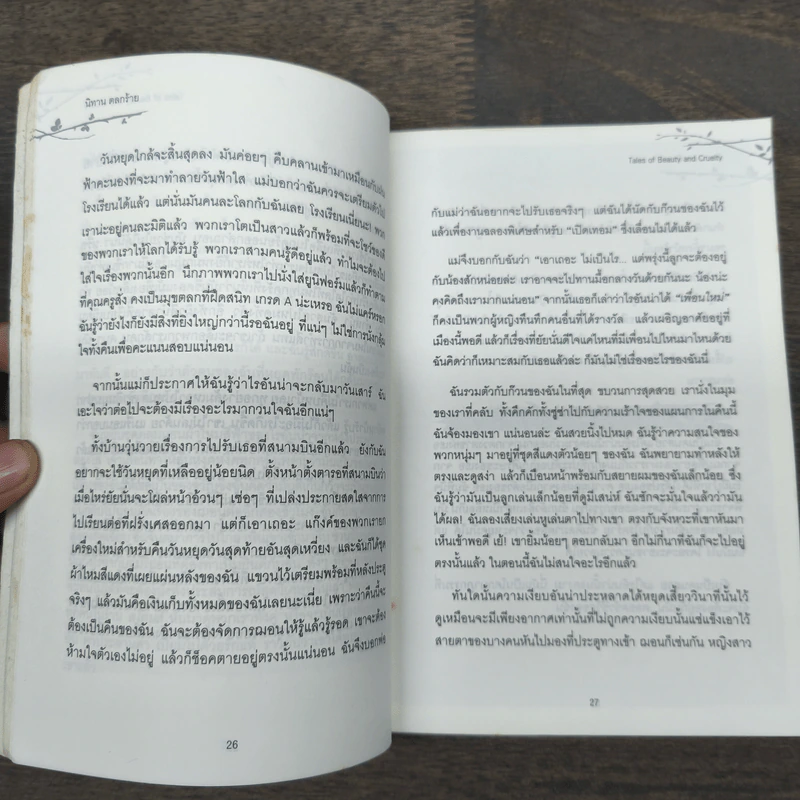 นิทาน ตลกร้าย
วันหยุดใกล้จะสิ้นสุดลง มันค่อยๆ คืบคลานเข้ามาเหมือนกับเป็น
ฟ้าคะนองที่จะมาทำลายวันฟ้าใส แม่บอกว่าฉันควรจะเตรียมตัวไป
โรงเรียนได้แล้ว แต่นั่นมันคนละโลกกับฉันเลย โรงเรียนเนี่ยนะ! พวก
เราน่ะอยู่คนละมิติแล้ว พวกเราโตเป็นสาวแล้วก็พร้อมที่จะโชว์ของดี
ของพวกเราให้โลกได้รับรู้ พวกเราสามคนรู้ดีอยู่แล้ว ทำไมจะต้องไป
ใส่ใจเรื่องพวกนั้นอีก นึกภาพพวกเราไปนั่งใส่ยูนิฟอร์มแล้วก็ทำตาม
ที่คุณครูสั่ง คงเป็นมุขตลกที่ฝืดสนิท เกรด A น่ะเหรอ ฉันไม่แคร์หรอก
ฉันรู้ว่ายังไงก็ยังมีสิ่งที่ยิ่งใหญ่กว่านี้รอฉันอยู่ ที่แน่ๆ ไม่ใช่การนั่งกลุ้ม
ใจทั้งคืนเพื่อคะแนนสอบแน่นอน
จากนั้นแม่ก็ประกาศให้ฉันรู้ว่าไรอันน่าจะกลับมาวันเสาร์ ฉัน
เอะใจว่าต่อไปจะต้องมีเรื่องอะไรมากวนใจฉันอีกแน่ๆ
ทั้งบ้านวุ่นวายเรื่องการไปรับเธอที่สนามบินอีกแล้ว ยังกับฉัน
อยากจะใช้วันหยุดที่เหลืออยู่น้อยนิด ตั้งหน้าตั้งตารอที่สนามบินว่า
เมื่อไหร่ยัยนั่นจะโผล่หน้าอ้วนๆ เซ่อๆ ที่เปล่งประกายสดใสจากการ
ไปเรียนต่อที่ฝรั่งเศสออกมา แต่ก็เอาเถอะ แก๊งค์ของพวกเรายก
เครื่องใหม่สำหรับคืนวันหยุดวันสุดท้ายอันสุดเหวี่ยง และฉันก็ได้ชุด
ผ้าไหมสีแดงที่เผยแผ่นหลังของฉัน แขวนไว้เตรียมพร้อมที่หลังประตู
จริงๆ แล้วมันคือเงินเก็บทั้งหมดของฉันเลยนะเนี่ย เพราะว่าคืนนี้จะ
ต้องเป็นคืนของฉัน ฉันจะต้องจัดการฌอนให้รู้แล้วรู้รอด เขาจะต้อง
ห้ามใจตัวเองไม่อยู่ แล้วก็ช็อคตายอยู่ตรงนั้นแน่นอน ฉันจึงบอกพ่อ
26
Tales of Beauty and Cruelty
กับแม่ว่าฉันอยากจะไปรับเธอจริงๆ แต่ฉันได้นัดกับก๊วนของฉันไว้
แล้วเพื่องานฉลองพิเศษสำหรับ “เปิดเทอม” ซึ่งเลื่อนไม่ได้แล้ว
แม่จึงบอกกับฉันว่า “เอาเถอะ ไม่เป็นไร... แต่พรุ่งนี้ลูกจะต้องอยู่
กับน้องสักหน่อยล่ะ เราอาจจะไปทานมื้อกลางวันด้วยกันนะ น้องน่ะ
คงคิดถึงเรามากแน่นอน” จากนั้นเธอก็เล่าว่าไรอันน่าได้ “เพื่อนใหม่”
ก็คงเป็นพวกผู้หญิงทึนทึกคนอื่นที่ได้รางวัล แล้วเผอิญอาศัยอยู่ที่
เมืองนี้พอดี แล้วก็เรื่องที่ยัยนั่นดีใจแค่ไหนที่มีเพื่อนไปไหนมาไหนด้วย
ฉันคิดว่าก็เหมาะสมกับเธอแล้วล่ะ ก็มันไม่ใช่เรื่องอะไรของฉันนี่
ฉันรวมตัวกับก๊วนของฉันในที่สุด ขบวนการสุดสวย เรานั่งในมุม
ของเราที่คลับ ทั้งคึกคักทั้งซู่ซ่าไปกับความเร้าใจของแผนการในคืนนี้
ฉันจ้องมองเขา แน่นอนล่ะ ฉันสวยนิ้งไปหมด ฉันรู้ว่าความสนใจของ
พวกหนุ่มๆ มาอยู่ที่ชุดสีแดงตัวน้อยๆ ของฉัน ฉันพยายามทำหลังให้
ตรงและดูสง่า แล้วก็เบือนหน้าพร้อมกับสยายผมของฉันเล็กน้อย ซึ่ง
ฉันรู้ว่ามันเป็นลูกเล่นเล็กน้อยที่ดูมีเสน่ห์ ฉันชักจะมั่นใจแล้วว่ามัน
ได้ผล! ฉันลองเสี่ยงเล่นหูเล่นตาไปทางเขา ตรงกับจังหวะที่เขาหันมา
เห็นเข้าพอดี เย้! เขายิ้มน้อยๆ ตอบกลับมา อีกไม่กี่นาทีฉันก็จะไปอยู่
ตรงนั้นแล้ว ในตอนนี้ฉันไม่สนใจอะไรอีกแล้ว
ทันใดนั้นความเงียบอันน่าประหลาดได้หยุดเสี้ยววินาทีนั้นไว้
ดูเหมือนจะมีเพียงอากาศเท่านั้นที่ไม่ถูกความเงียบนั้นแช่แข็งเอาไว้
สายตาของบางคนหันไปมองที่ประตูทางเข้า ฌอนก็เช่นกัน หญิงสาว
27